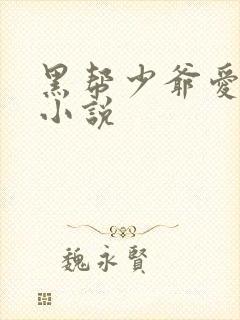 黑帮少爷愛
小説
魏永賢